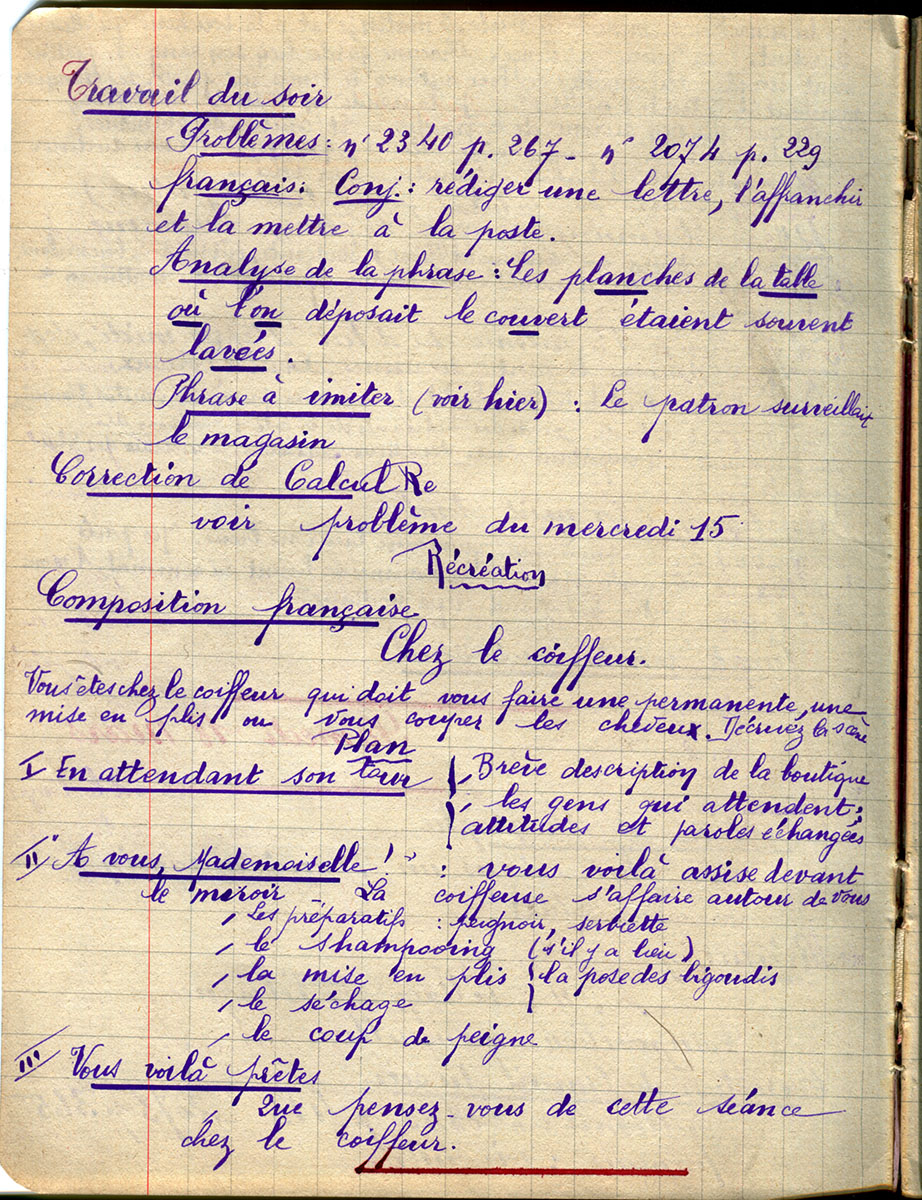 Travail du soir
Problèmes : n° 2340 p. 267 - n° 2074 p. 229
français : Conj. : rédiger une lettre, l'affranchir
et la mettre à la poste.
Analyse de la phrase : Les planches de la table
où l'on déposait le couvert étaient souvent
lavées.
Phrase à imiter (voir hier) : le patron surveillait
le magasin
Correction de Calcul Re
voir problème du mercredi 15
Récréation
Composition française
Chez le coiffeur.
Vous êtes chez le coiffeur qui doit vous faire une permanente, une
mise en plis ou vous couper les cheveux. Décrivez la scène
Plan
I En attendant son tour { , Brève description de la boutique
, les gens qui attendent ;
attitudes et paroles échangées
II " A vous, Mademoiselle ! " : vous voilà assise devant
le miroir La coiffeuse s'affaire autour de vous
, Les préparatifs : peignoir, serviette
, le shampooing (s'il y a lieu)
, la mise en plis } la pose des bigoudis
, le séchage
, le coup de peigne
III Vous voilà prêtes
, Que pensez-vous de cette séance
chez le coiffeur.